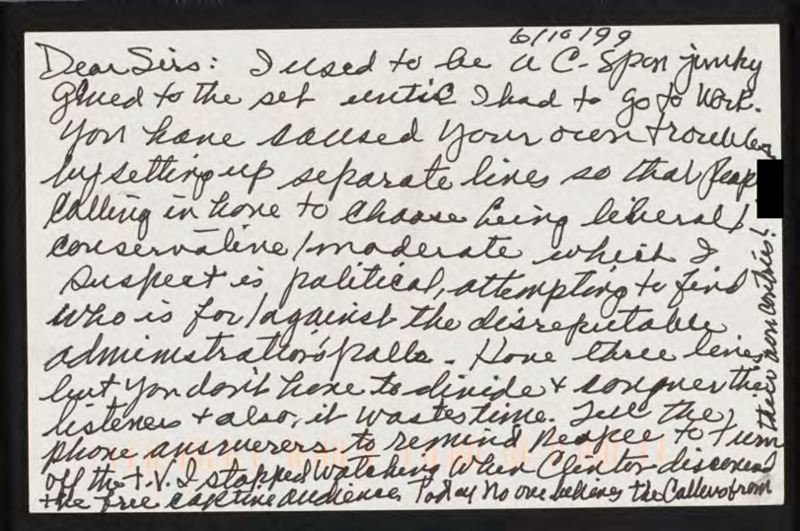 6/10/99
Dear Sirs: I used to be a C-Span junky
glued to the set until I had to go to work.
You have caused your own troubles
by setting up separate lines so that
calling in have to choose being liberal/
conservative/moderate which I
suspect is political, attempting to find
who is for/against the disreputable
administration's polls. Have three lines
but you don't have to divide & conquer the
listeners & also, it wastes time. Tell the
phone answerers to remind people to turn
off the T.V. I stopped watching when Clinton discovered
the free captive audience. Today no one believes the Callers from
their own countries!